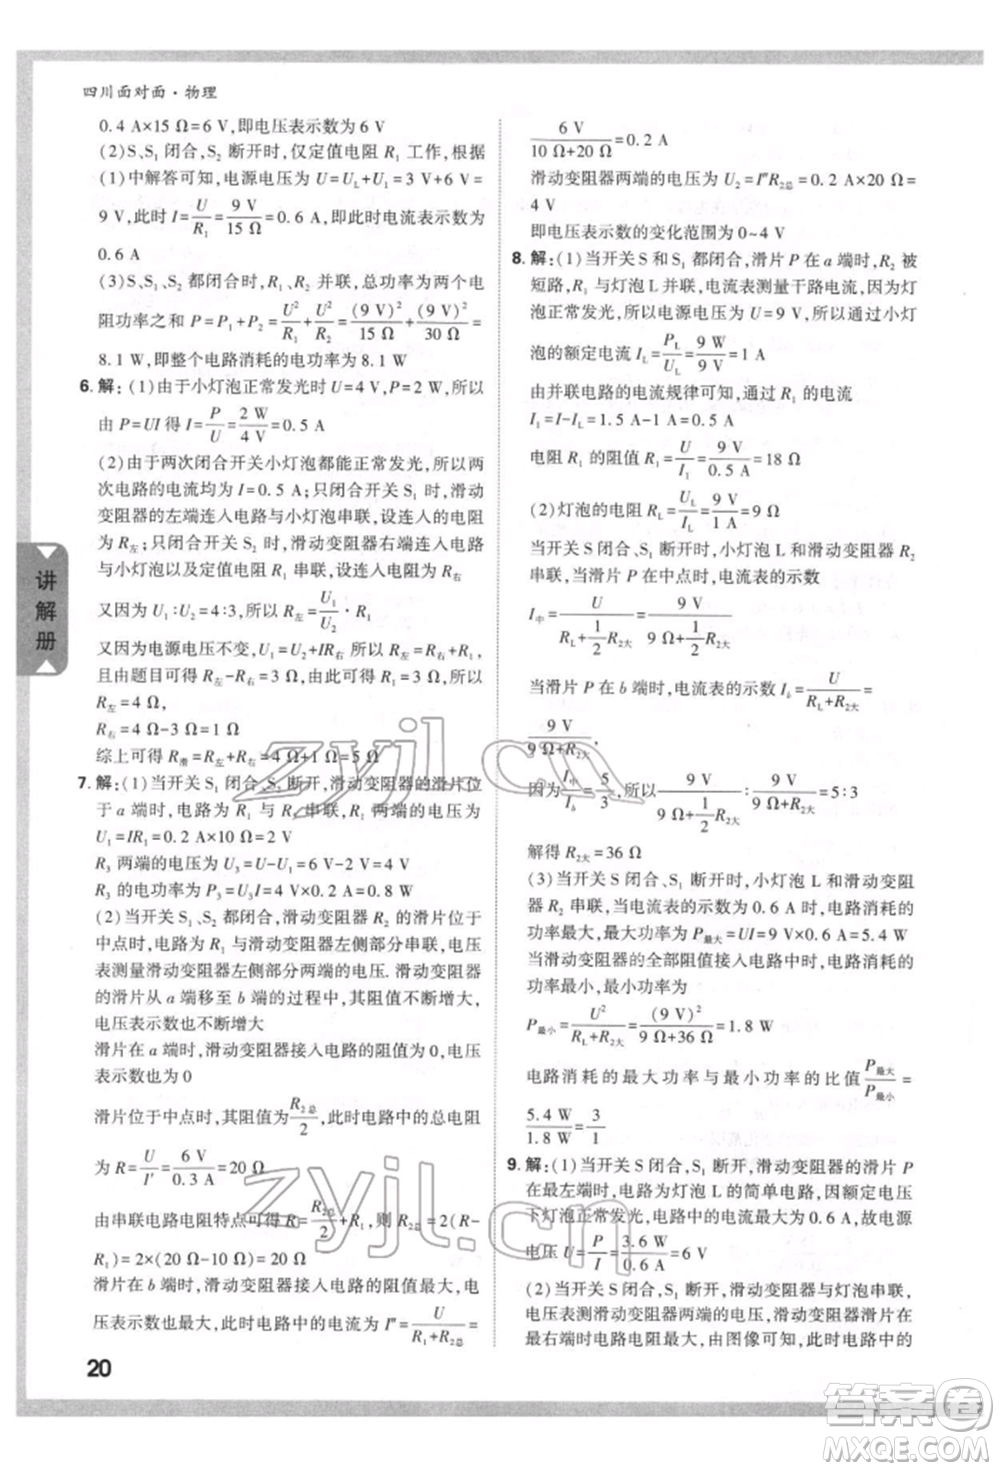 四川面对面·物理
0.4 A×15 Ω=6 V,即电压表示数为 6 V
(2)S、S₁ 闭合,S₂ 断开时,仅定值电阻 R₁ 工作,根据
(1)中解答可知,电源电压为 U=U_L+U₁=3 V+6 V=
9 V,此时 I=U/R₁=9 V/15 Ω=0.6 A,即此时电流表示数为
0.6 A
(3)S、S₁、S₂ 都闭合时,R₁、R₂ 并联,总功率等于两电
阻功率之和 P=P₁+P₂=U²/R₁+U²/R₂=(9 V)²/15 Ω+(9 V)²/30 Ω=
8.1 W,即整个电路消耗的电功率为 8.1 W
6.解:(1)由于小灯泡正常发光时 U=4 V,P=2 W,所以
由 P=UI 得 I=P/U=2 W/4 V=0.5 A
(2)由于两次闭合开关小灯泡都能正常发光,所以两
次电路的电流均为 I=0.5 A;只闭合开关 S₁ 时,滑动
变阻器的左端连入电路与小灯泡串联,设连入的电阻
为 R左;只闭合开关 S₂ 时,滑动变阻器右端连入电路
与小灯泡以及定值电阻 R₁ 串联,设连入电阻为 R右
又因为 U₁∶U₂=4∶3,所以 R左=U₁/U₂·R₁
又因为电源电压不变,U₁=U₂+IR右
且由题目可得 R左-R右=3 Ω,所以
R左=4 Ω,
R右=4 Ω-3 Ω=1 Ω
综上可得 R滑=R左+R右=4 Ω+1 Ω=5 Ω
7.解:(1)当开关 S₁ 闭合、S₂ 断开,滑动变阻器的滑片位
于 a 端时,电路为 R₁ 与 R₃ 串联,R₁ 两端的电压为
U₁=IR₁=0.2 A×10 Ω=2 V
R₃ 两端的电压为 U₃=U-U₁=6 V-2 V=4 V
R₃ 的电功率为 P₃=U₃I=4 V×0.2 A=0.8 W
(2)当开关 S₁、S₂ 都闭合,滑动变阻器 R₂ 的滑片位于
中点时,电路为 R₁ 与滑动变阻器左侧部分串联,电压
表测量滑动变阻器左侧部分两端的电压. 滑动变阻器
的滑片从 a 端移至 b 端的过程中,其阻值不断增大,
电压表示数也不断增大
滑片在 a 端时,滑动变阻器接入电路的阻值为 0,电压
表示数为 0
滑片位于中点时,其阻值为R₂总/2,此时电路中的总电阻
为 R=U/I′=6 V/0.3 A=20 Ω
由串联电路电阻特点可得 R=R₂总/2+R₁,则 R₂总=2(R-
R₁)=2×(20 Ω-10 Ω)=20 Ω
滑片在 b 端时,滑动变阻器接入电路的阻值最大,电
压表示数也最大,此时电路中的电流为 I″=U/(R₁+R₂总)=
6 V/(10 Ω+20 Ω)=0.2 A
滑动变阻器两端的电压为 U₂=I″R₂总=0.2 A×20 Ω=
4 V
即电压表示数的变化范围为 0~4 V
8.解:(1)当开关 S 和 S₁ 都闭合,滑片 P 在 a 端时,R₂ 被
短路,R₁ 与灯泡 L 并联,电流表测量干路电流,因为灯
泡正常发光,所以电源电压为 U=9 V,所以此时小灯
泡的额定电流 I_L=P_L/U_L=9 W/9 V=1 A
由并联电路的电流规律可知,通过 R₁ 的电流
I₁=I-I_L=1.5 A-1 A=0.5 A
电阻 R₁ 的阻值 R₁=U/I₁=9 V/0.5 A=18 Ω
(2)灯泡的电阻为 R_L=U_L/I_L=9 V/1 A=9 Ω
当开关 S 闭合、S₁ 断开时,小灯泡与滑动变阻器 R₂
串联,当滑片 P 在中点时,电流表的示数
I中=U/(R_L+1/2R₂大)=9 V/(9 Ω+1/2R₂大)
当滑片 P 在 b 端时,电流表的示数 I_b=U/(R_L+R₂大)=
9 V/(9 Ω+R₂大),
因为I中/I_b=5/3,所以9 V/(9 Ω+1/2R₂大)∶9 V/(9 Ω+R₂大)=5∶3
解得 R₂大=36 Ω
(3)当开关 S 闭合、S₁ 断开时,小灯泡 L 和滑动变阻
器 R₂ 串联,当电流表的示数为 0.6 A 时,电路消耗的
功率最大,最大功率为 P最大=UI=9 V×0.6 A=5.4 W
当滑动变阻器的全部阻值接入电路中时,电路消耗的
功率最小,最小功率为
P最小=U²/(R_L+R₂大)=(9 V)²/(9 Ω+36 Ω)=1.8 W
电路消耗的最大功率与最小功率的比值P最大/P最小=
5.4 W/1.8 W=3/1
9.解:(1)当开关 S 闭合、S₁ 断开,滑动变阻器的滑片 P
在最左端时,电路为灯泡 L 的简单电路,因额定电压
下灯泡正常发光,电路中的电流最大为 0.6 A,故电源
电压 U=P/I=3.6 W/0.6 A=6 V
(2)当开关 S 闭合、S₁ 断开时,滑动变阻器与灯泡串联,
电压表测滑动变阻器两端的电压,滑动变阻器的滑片在
最右端时电路电阻最大,由图像可知,此时电路中的
讲解册
20
zyjl.cn
zyjl.cn
答案卷
MXQE.COM